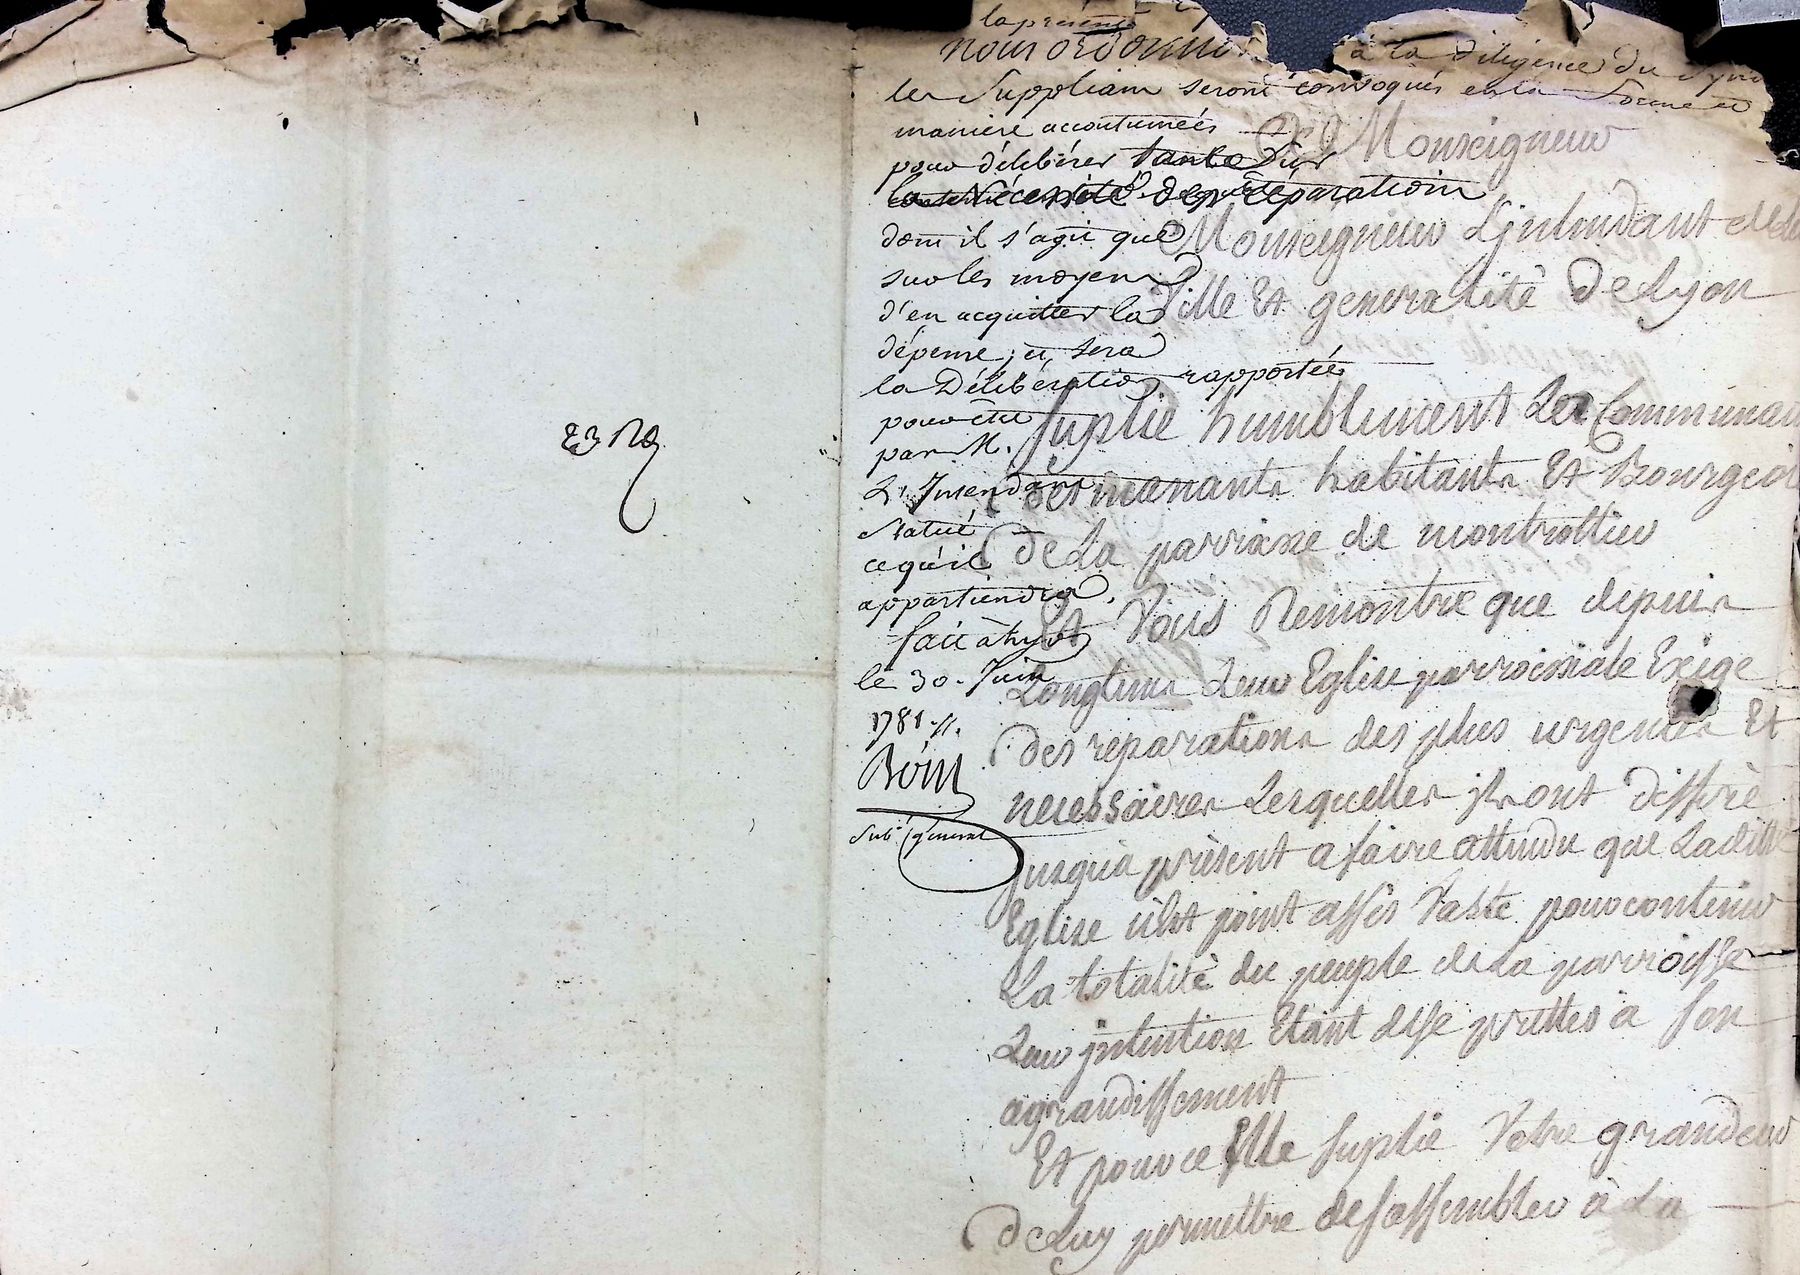 la présente
nous ordonnons à la diligence du Syn
les Supplians seront convoqués en la forme et
manière accoutumées
pour délibérer tant sur
la Nécessité des réparations
dont il s'agit que
sur les moyens
d'en acquitter la
dépense, et sera
la Délibération rapportée
pour être
par M.
L'Intendant
statué
ce qu'il
appartiendra.
fait à Lyon
le 30. Juin
1781 ./.
Sub. general
A Monseigneur
Monseigneur L'jntendant dela
Ville Et generalité De Lyon
Suplie humblement Les Communau
des manants habitants Et Bourgeois
De La parroisse de montrottier
Et Vous Remontre que depuis
Longtems Leur Eglise parroissiale Exige
Des reparations des plus urgentes Et
necessaires Lesquelles jls ont differé
jusqu'a prèsent a faire attendu que Laditte
Eglise n'est point assés Vaste pour contenir
La totalité du peuple de La parroisse
Leur jntention Etant de se prettes à son
agrandissement
Et pour ce Elle suplie Votre grandeur
De Luy permettre de sassembler à La